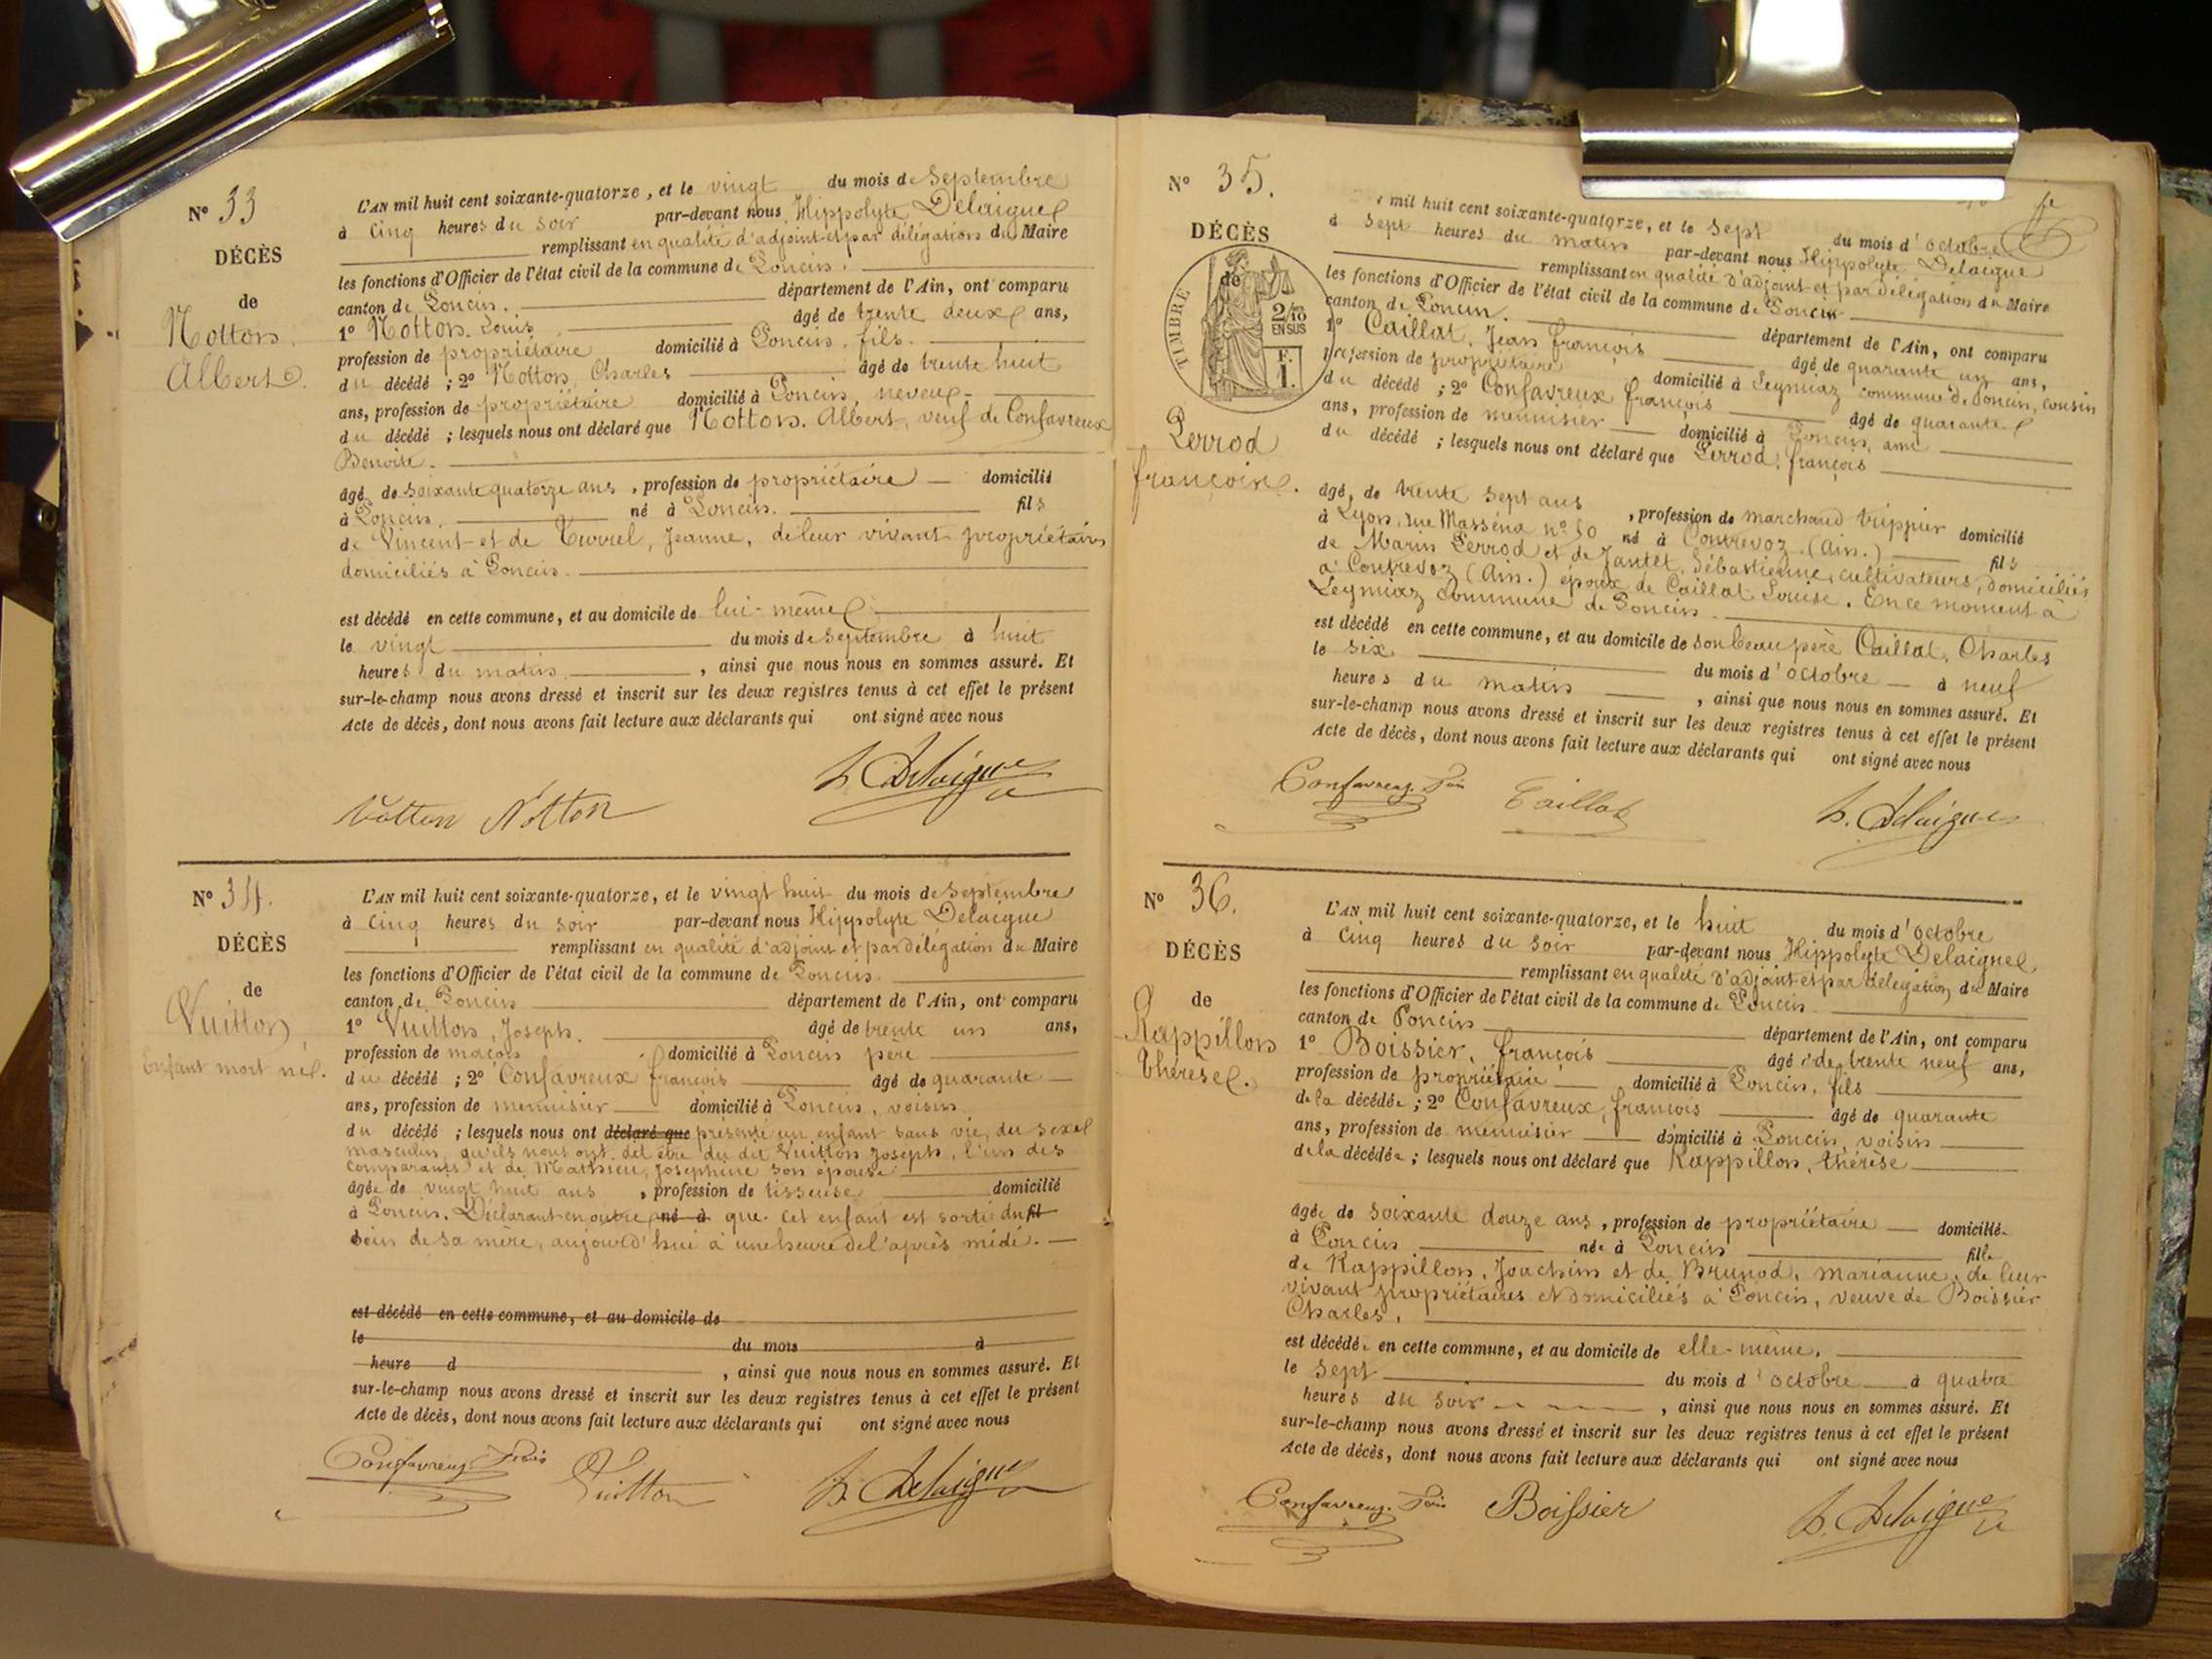 N° 33
DÉCÈS
de
Notton
Albert.
L'AN mil huit cent soixante-quatorze, et le vingt du mois de Septembre
à cinq heures du soir par-devant nous Hippolyte Delaigue
remplissant en qualité d'adjoint et par délégation du Maire
les fonctions d'Officier de l'état civil de la commune de Poncin.
canton de Poncin. département de l'Ain, ont comparu
1° Notton. Louis âgé de trente deux ans,
profession de propriétaire domicilié à Poncin, fils.
du décédé ; 2° Notton, Charles âgé de trente huit
ans, profession de propriétaire domicilié à Poncin, neveu
du décédé ; lesquels nous ont déclaré que Notton. Albert, veuf de Confavreux
Benoite.
âgé de soixante quatorze ans, profession de propriétaire domicilié
à Poncin. né à Poncin. fils
de Vincent et de Jeanne, de leur vivant propriétaires
domiciliés à Poncin.
est décédé en cette commune, et au domicile de lui-même
le vingt du mois de septembre à huit
heures du matin, ainsi que nous nous en sommes assuré. Et
sur-le-champ nous avons dressé et inscrit sur les deux registres tenus à cet effet le présent
Acte de décès, dont nous avons fait lecture aux déclarants qui ont signé avec nous
Notton Notton
h. Delaigue
N° 34.
DÉCÈS
de
Vuitton,
Enfant mort né.
L'AN mil huit cent soixante-quatorze, et le vingt huit du mois de Septembre
à cinq heures du soir par-devant nous Hippolyte Delaigue
remplissant en qualité d'adjoint et par délégation du Maire
les fonctions d'Officier de l'état civil de la commune de Poncin.
canton de Poncin département de l'Ain, ont comparu
1° Vuitton, Joseph. âgé de trente un ans,
profession de maçon domicilié à Poncin père
du décédé ; 2° Confavreux françois âgé de quarante
ans, profession de menuisier domicilié à Poncin, voisin
du décédé ; lesquels nous ont déclaré que présenté un enfant sans vie, du sexe
masculin, qu'ils nous ont dit être du dit Vuitton Joseph, l'un des
comparants et de Mathieu, Joséphine son épouse
âgée de vingt huit ans, profession de tisseuse domicilié
à Poncin. Déclarant en outre né à que cet enfant est sorti du fil
sein de sa mère, aujourd'hui à une heure de l'après midi.
est décédé en cette commune, et au domicile de
le du mois à
heure d , ainsi que nous nous en sommes assuré. Et
sur-le-champ nous avons dressé et inscrit sur les deux registres tenus à cet effet le présent
Acte de décès, dont nous avons fait lecture aux déclarants qui ont signé avec nous
Confavreux fçois Vuitton h. Delaigue
N° 35.
DÉCÈS
de
TIMBRE
2/10
EN SUS
F.
1.
Perrod
françois.
mil huit cent soixante-quatorze, et le sept du mois d'octobre
à sept heures du matin par-devant nous Hippolyte Delaigue
remplissant en qualité d'adjoint et par délégation du Maire
les fonctions d'Officier de l'état civil de la commune de Poncin
canton de Poncin. département de l'Ain, ont comparu
1° Caillat, Jean françois âgé de quarante un ans,
profession de propriétaire domicilié à Leymiaz commune de Poncin, cousin
du décédé ; 2° Confavreux françois âgé de quarante
ans, profession de menuisier domicilié à Poncin, ami
du décédé ; lesquels nous ont déclaré que Perrod, françois
âgé, de trente sept ans, profession de marchand trippier domicilié
à Lyon, rue Masséna n° 50 né à Contrevoz (Ain.) fils
de Marin Perrod et de Jantet, Sébastienne, cultivateurs, domiciliés
à Contrevoz (Ain.) époux de Caillat Louise. En ce moment à
Leymiaz commune de Poncin
est décédé en cette commune, et au domicile de son beau père Caillat, Charles
le six du mois d'octobre à neuf
heures du matin, ainsi que nous nous en sommes assuré. Et
sur-le-champ nous avons dressé et inscrit sur les deux registres tenus à cet effet le présent
Acte de décès, dont nous avons fait lecture aux déclarants qui ont signé avec nous
Confavreux fçois Caillat h. Delaigue
N° 36.
DÉCÈS
de
Rappillon
thérèse.
L'AN mil huit cent soixante-quatorze, et le huit du mois d'octobre
à cinq heures du soir par-devant nous Hippolyte Delaigue
remplissant en qualité d'adjoint et par délégation du Maire
les fonctions d'Officier de l'état civil de la commune de Poncin
canton de Poncin département de l'Ain, ont comparu
1° Boissier, françois âgé de trente neuf ans,
profession de propriétaire domicilié à Poncin, fils
de la décédée ; 2° Confavreux, françois âgé de quarante
ans, profession de menuisier domicilié à Poncin, voisin
de la décédée ; lesquels nous ont déclaré que Rappillon, thérèse
âgée de soixante douze ans, profession de propriétaire domiciliée
à Poncin née à Poncin fille
de Rappillon, Joachim et de Brunod, marianne, de leur
vivant propriétaires et domiciliés à Poncin, veuve de Boissier
Charles.
est décédée en cette commune, et au domicile de elle-même,
le sept du mois d'octobre à quatre
heures du soir, ainsi que nous nous en sommes assuré. Et
sur-le-champ nous avons dressé et inscrit sur les deux registres tenus à cet effet le présent
Acte de décès, dont nous avons fait lecture aux déclarants qui ont signé avec nous
Confavreux fçois Boissier h. Delaigue